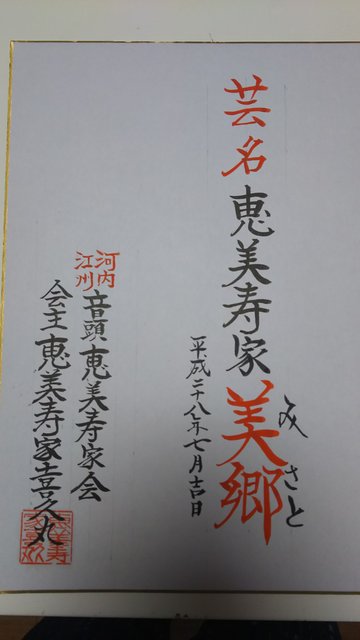 芸名 恵美寿家 美郷
みさと
平成二十八年七月吉日
河内
江州
音頭 恵美寿家会
会主 恵美寿家喜久丸